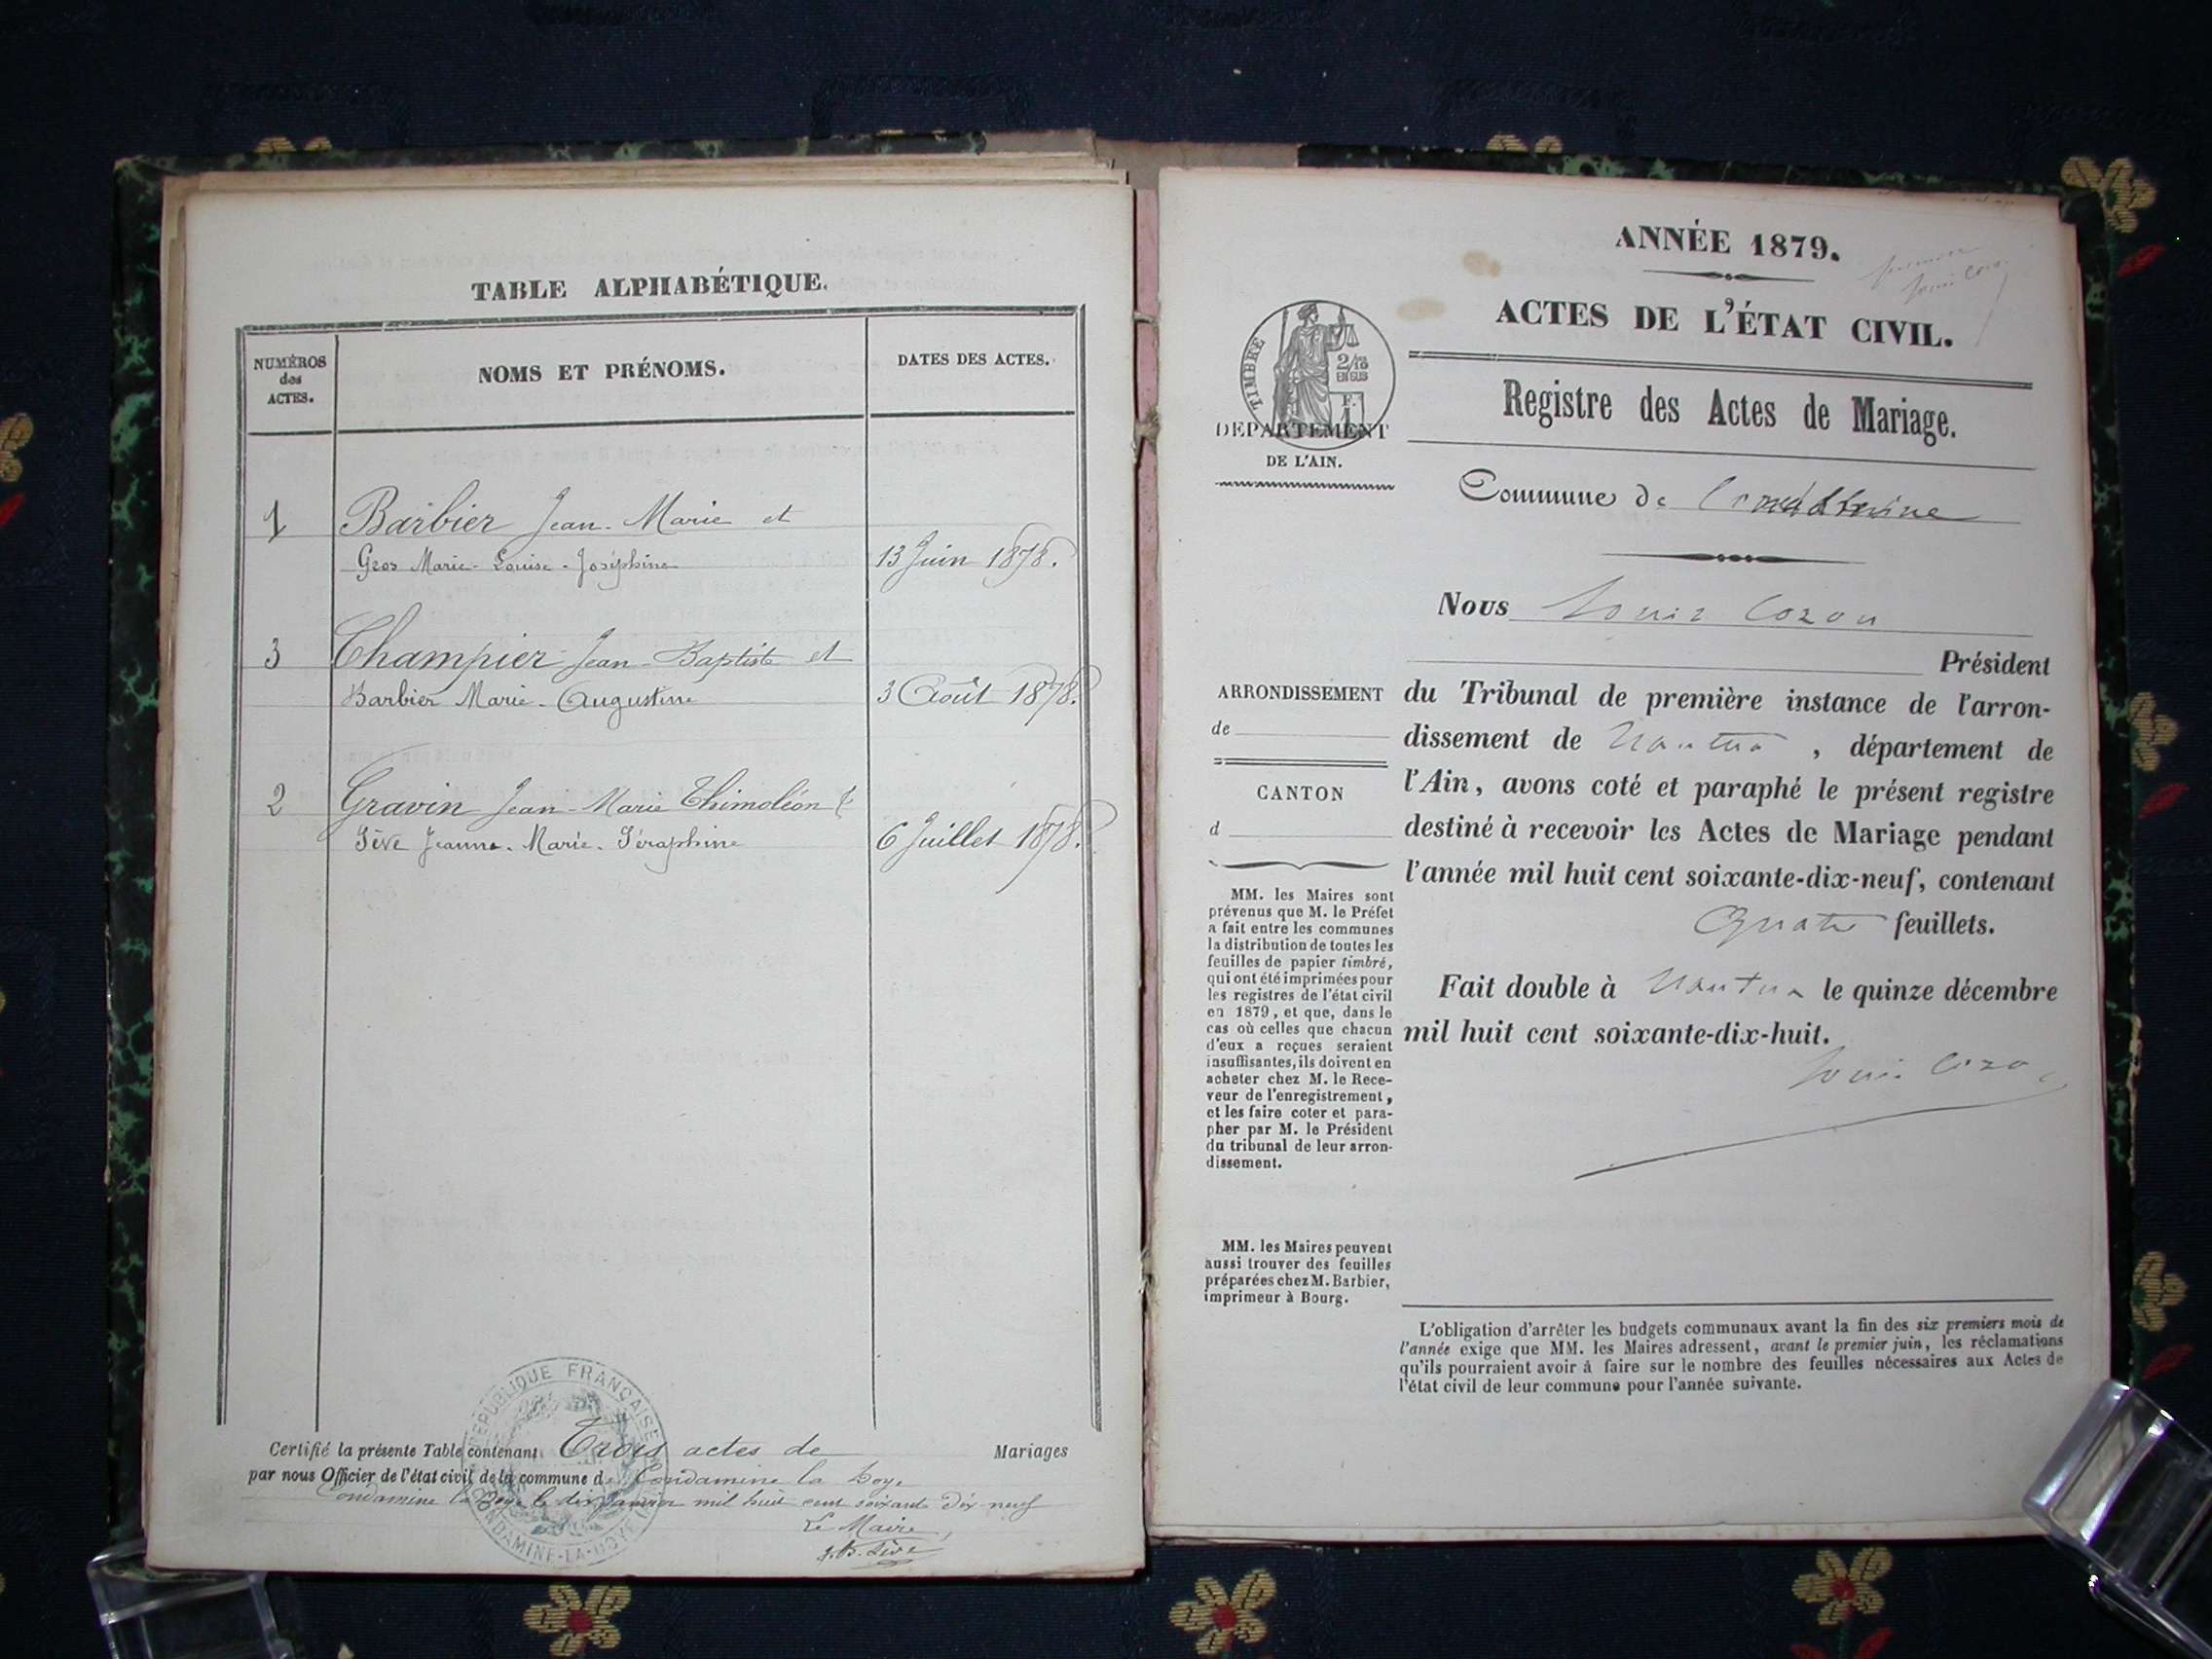 TABLE ALPHABÉTIQUE.
NUMÉROS
des
ACTES.
NOMS ET PRÉNOMS.
DATES DES ACTES.
1 Barbier Jean-Marie et
Gros Marie-Louise-Joséphine 13 Juin 1878.
3 Champier Jean-Baptiste et
Barbier Marie-Augustine 3 Août 1878.
2 Gravin Jean-Marie Thimoléon &
Sève Jeanne-Marie-Séraphine 6 Juillet 1878.
RÉPUBLIQUE FRANÇAISE
CONDAMINE-LA-DOYE
Certifié la présente Table contenant Trois actes de Mariages
par nous Officier de l'état civil de la commune de Condamine la Doye
Condamine la Doye le dix Janvier mil huit cent soixante dix-neuf
Le Maire,
J.B. Sève
ANNÉE 1879.
ACTES DE L'ÉTAT CIVIL.
TIMBRE
2/10
EN SUS
F.
1
DÉPARTEMENT
DE L'AIN.
Registre des Actes de Mariage.
Commune de Condamine
Nous Louis Cozon
Président
du Tribunal de première instance de l'arron-
dissement de Nantua, département de
l'Ain, avons coté et paraphé le présent registre
destiné à recevoir les Actes de Mariage pendant
l'année mil huit cent soixante-dix-neuf, contenant
Quatre feuillets.
Fait double à Nantua le quinze décembre
mil huit cent soixante-dix-huit.
Louis Cozon
ARRONDISSEMENT
de
CANTON
d
MM. les Maires sont
prévenus que M. le Préfet
a fait entre les communes
la distribution de toutes les
feuilles de papier timbré,
qui ont été imprimées pour
les registres de l'état civil
en 1879, et que, dans le
cas où celles que chacun
d'eux a reçues seraient
insuffisantes, ils doivent en
acheter chez M. le Rece-
veur de l'enregistrement,
et les faire coter et para-
pher par M. le Président
du tribunal de leur arron-
dissement.
MM. les Maires peuvent
aussi trouver des feuilles
préparées chez M. Barbier,
imprimeur à Bourg.
L'obligation d'arrêter les budgets communaux avant la fin des six premiers mois de
l'année exige que MM. les Maires adressent, avant le premier juin, les réclamations
qu'ils pourraient avoir à faire sur le nombre des feuilles nécessaires aux Actes de
l'état civil de leur commune pour l'année suivante.